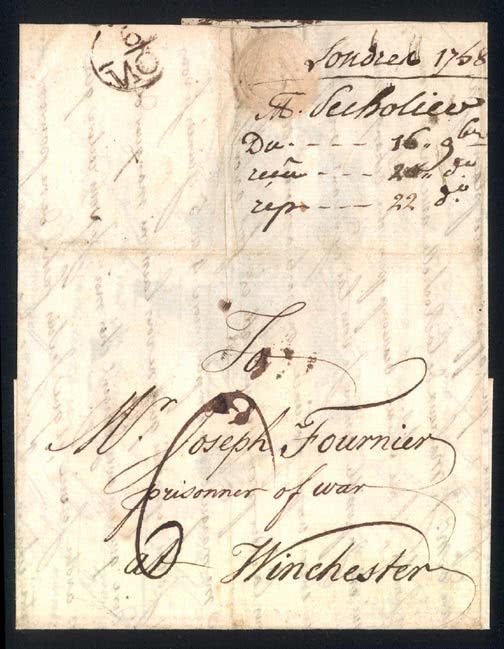 NO
Londres 1758
M.
Du - - - - 16 „ 9bre
reçu - - - - do
rép - - - - 22 do
To
Mr. Joseph Fournier
prisonner of war
at Winchester
6